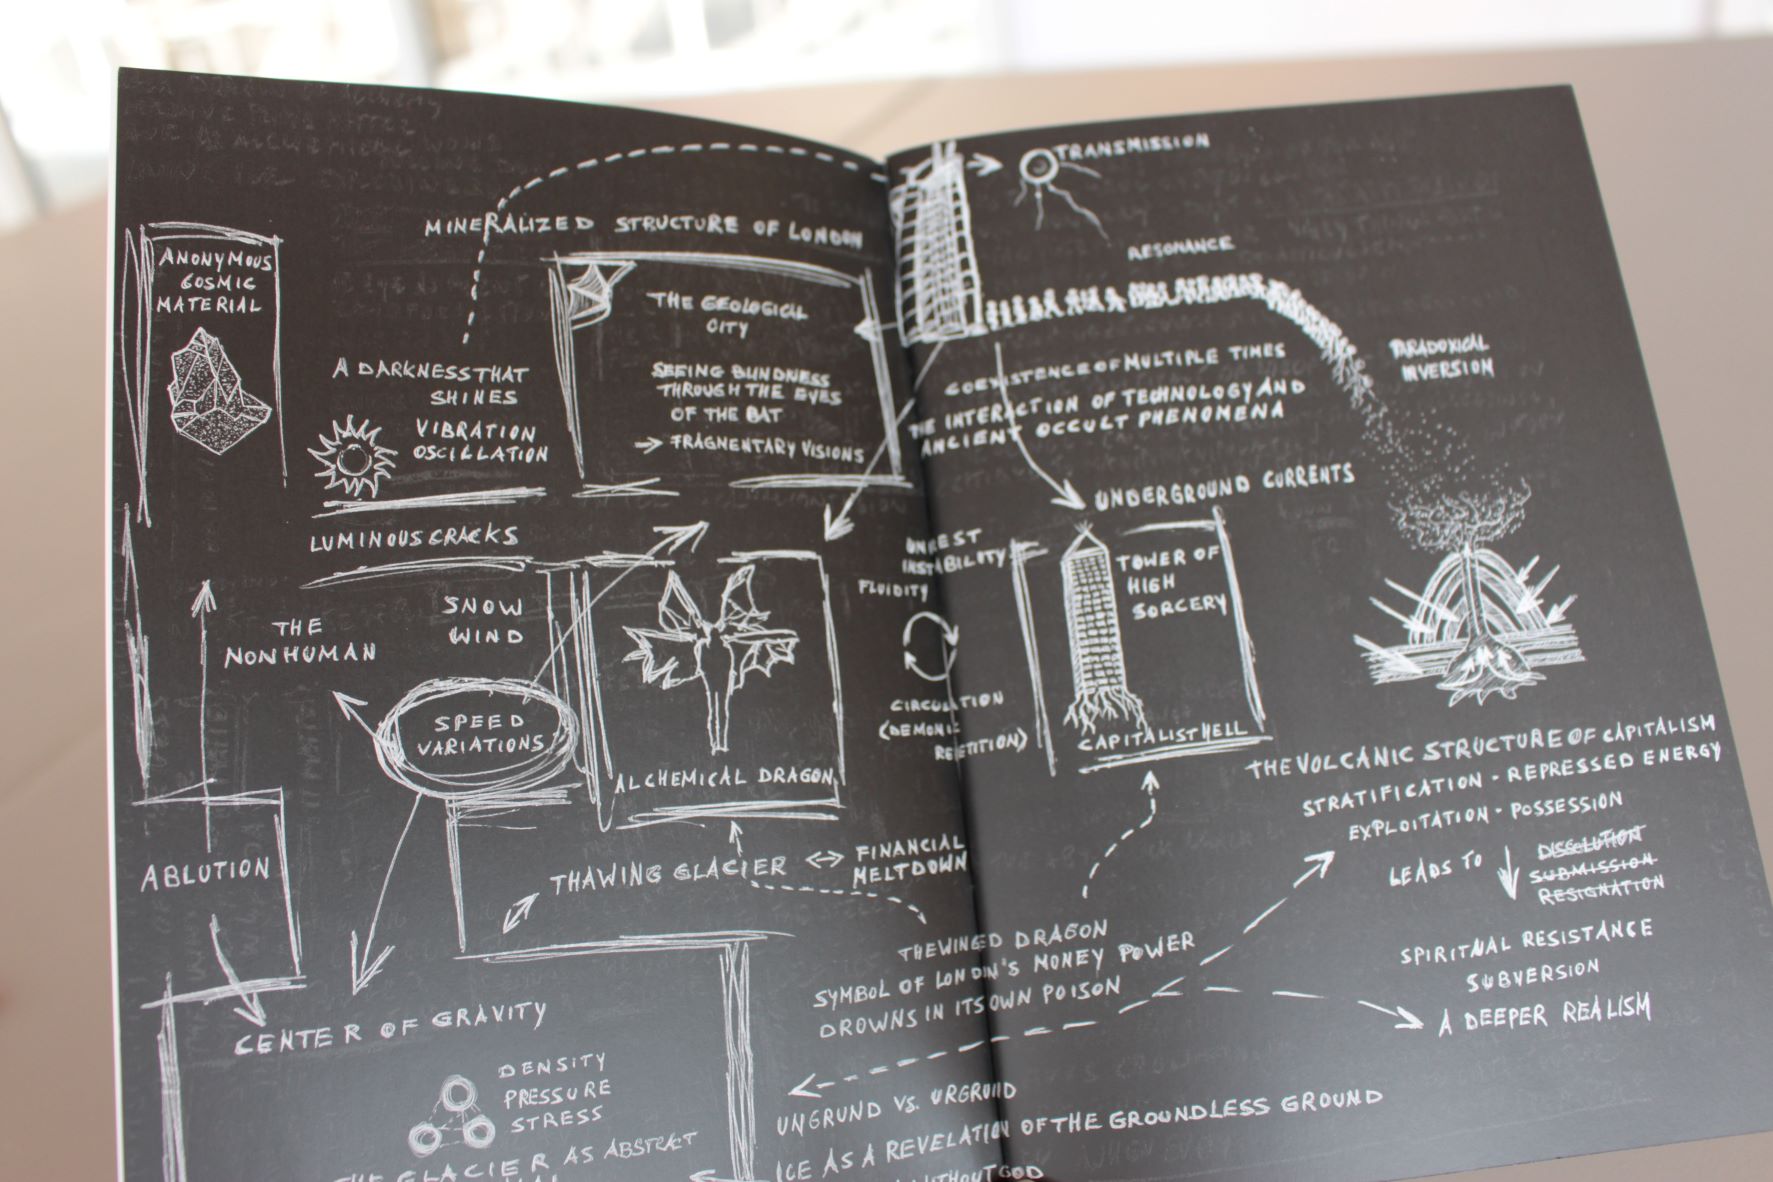 ANONYMOUS
COSMIC
MATERIAL
MINERALIZED STRUCTURE OF LONDON
A DARKNESS THAT
SHINES
VIBRATION
OSCILLATION
LUMINOUS CRACKS
THE GEOLOGICAL
CITY
SEEING BLINDNESS
THROUGH THE EYES
OF THE BAT
→ FRAGMENTARY VISIONS
THE
NONHUMAN
SNOW
WIND
SPEED
VARIATIONS
ALCHEMICAL DRAGON
ABLUTION
THAWING GLACIER ↔ FINANCIAL
MELTDOWN
CENTER OF GRAVITY
DENSITY
PRESSURE
STRESS
THE GLACIER AS ABSTRACT
TRANSMISSION
RESONANCE
PARADOXICAL
INVERSION
COEXISTENCE OF MULTIPLE TIMES
THE INTERACTION OF TECHNOLOGY AND
ANCIENT OCCULT PHENOMENA
UNDERGROUND CURRENTS
UNREST
INSTABILITY
FLUIDITY
CIRCULATION
(DEMONIC
REPETITION)
TOWER OF
HIGH
SORCERY
CAPITALIST HELL
THE VOLCANIC STRUCTURE OF CAPITALISM
STRATIFICATION - REPRESSED ENERGY
EXPLOITATION - POSSESSION
LEADS TO
DISSOLUTION
SUBMISSION
RESIGNATION
SPIRITUAL RESISTANCE
SUBVERSION
A DEEPER REALISM
THE WINGED DRAGON
SYMBOL OF LONDON'S MONEY POWER
DROWNS IN ITS OWN POISON
UNGRUND VS. URGRUND
ICE AS A REVELATION OF THE GROUNDLESS GROUND
WITHOUT GOD